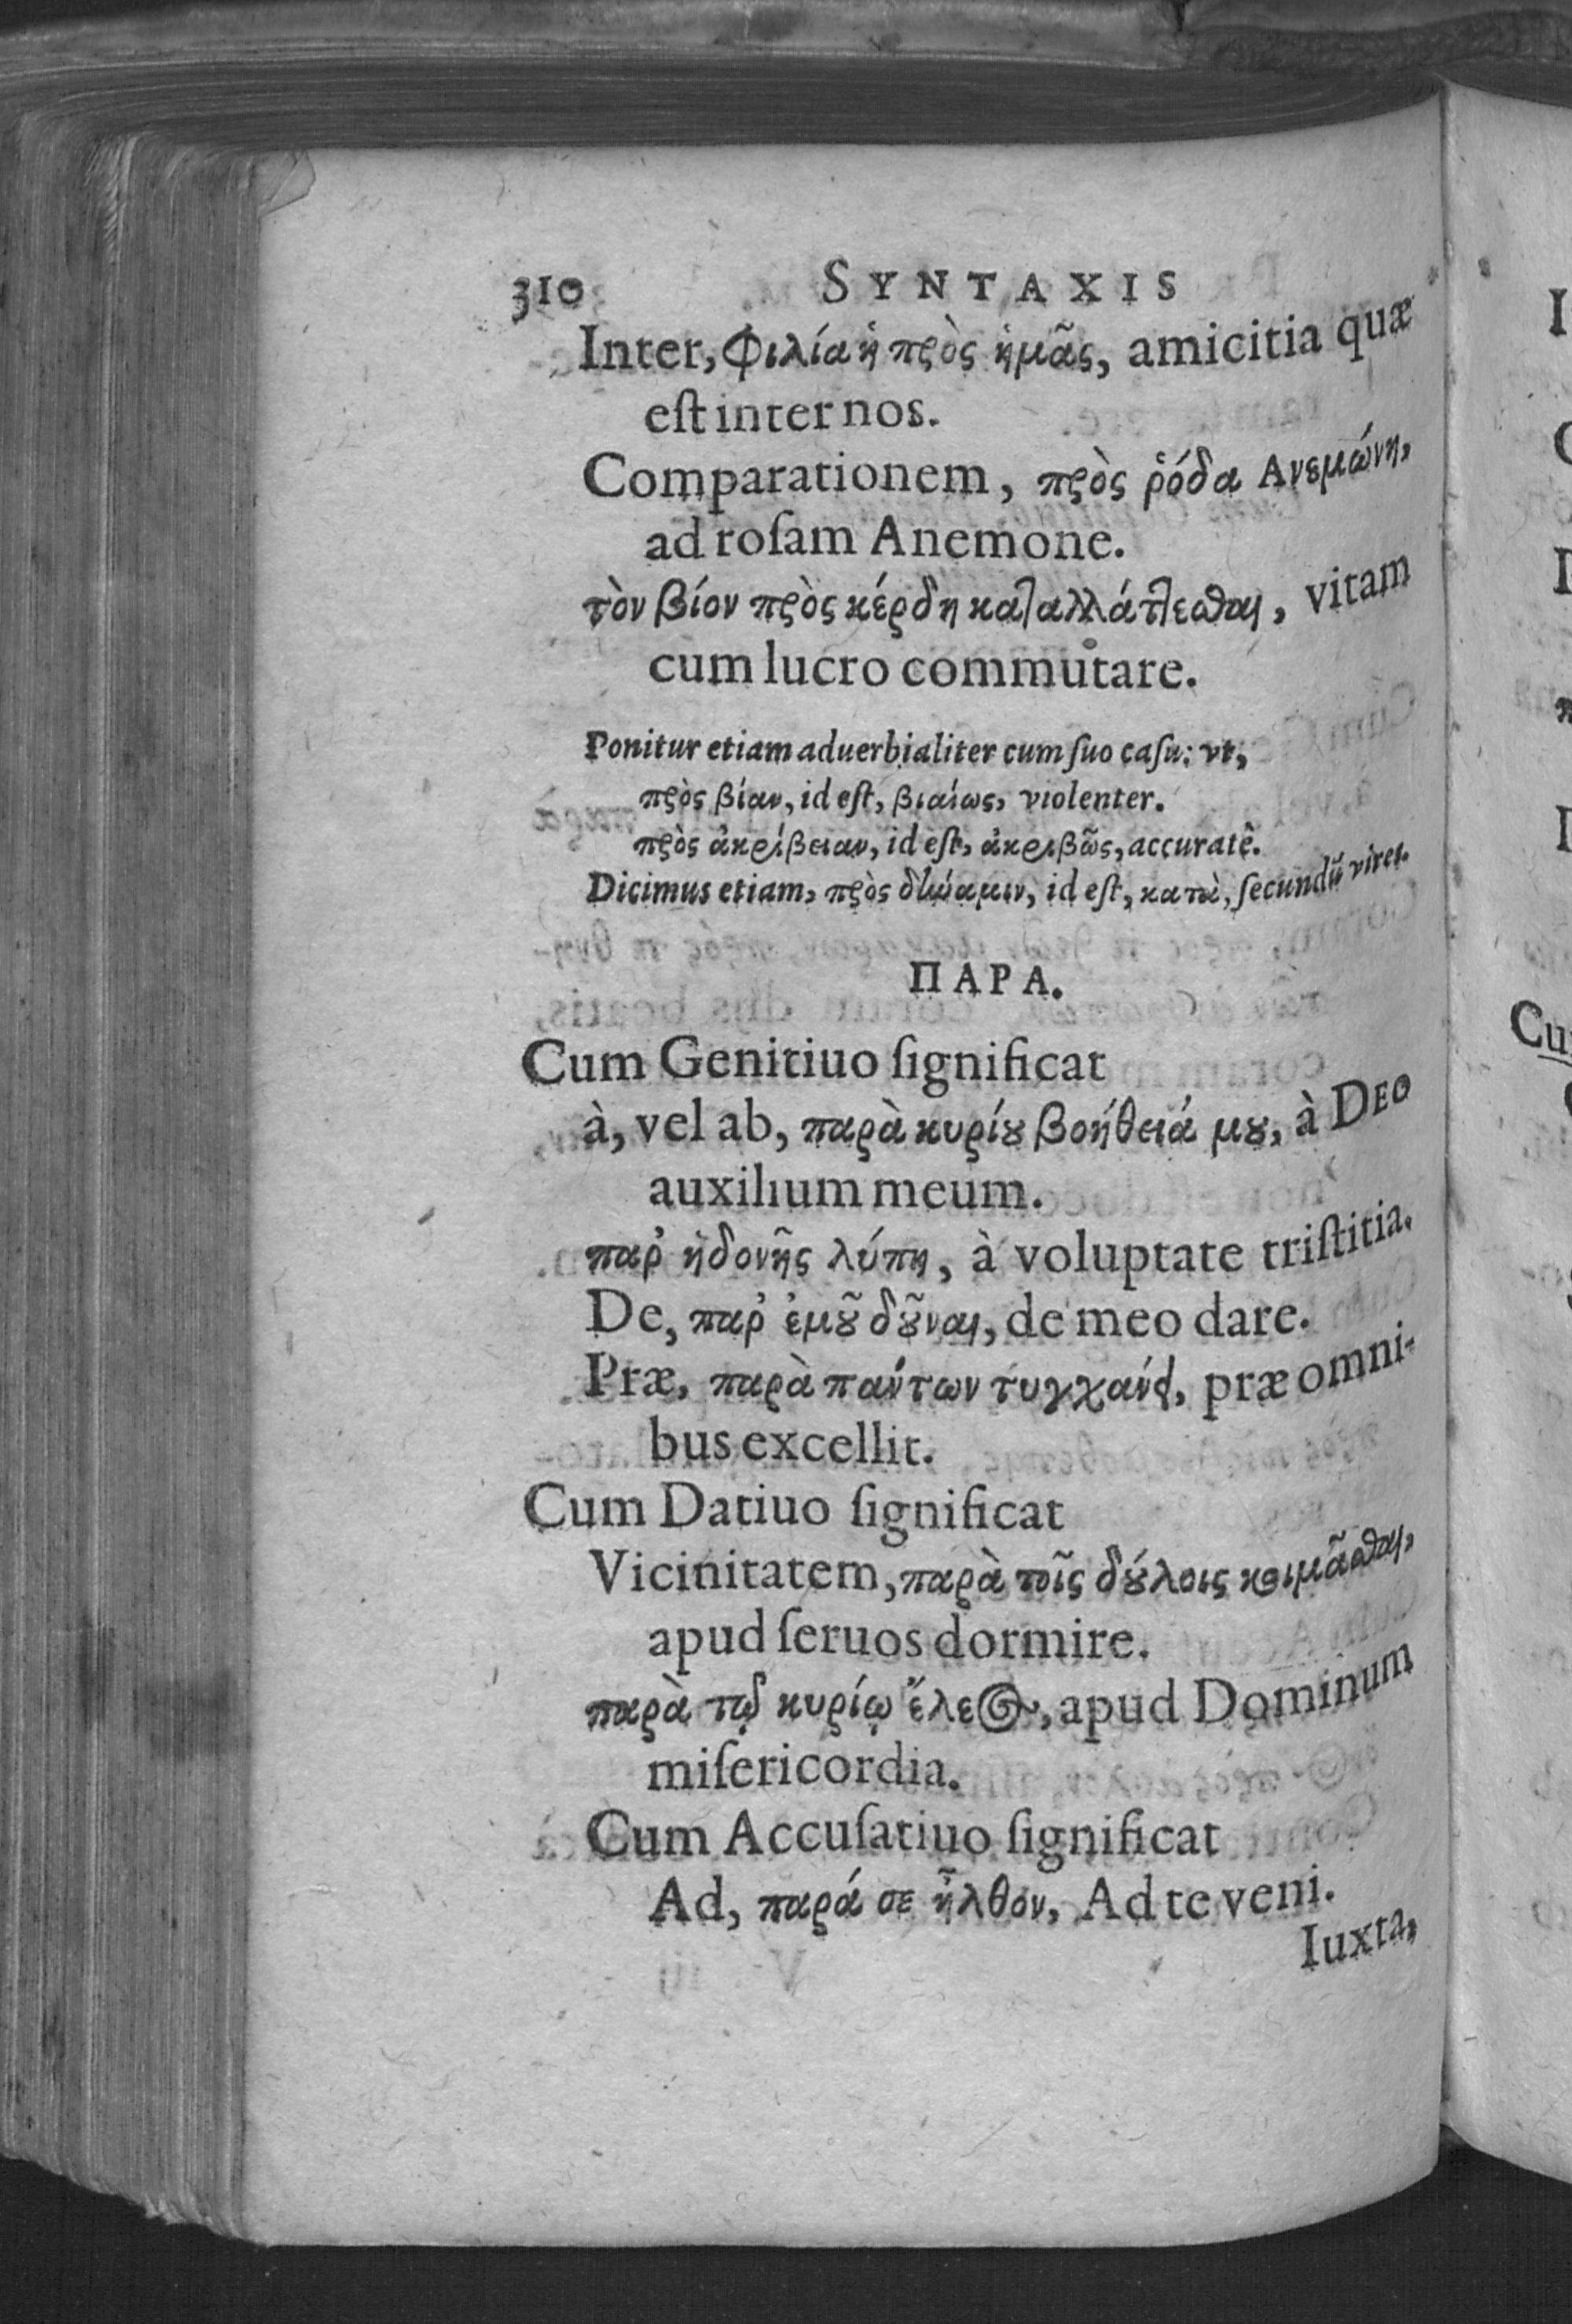 310 SYNTAXIS
Inter, φιλία ἡ πρὸς ἡμᾶς, amicitia quæ
eſt inter nos.
Comparationem, πρὸς ῥόδα Ανεμώνη,
ad roſam Anemone.
τὸν βίον πρὸς κέρδη καταλλάττεσθαι, vitam
cum lucro commutare.
Ponitur etiam aduerbialiter cum ſuo caſu: vt,
πρὸς βίαν, id eſt, βιαίως, violenter.
πρὸς ἀκρίβειαν, id eſt, ἀκριβῶς, accuratè.
Dicimus etiam, πρὸς δύναμιν, id eſt, κατὰ, ſecundũ vires.
ΠΑΡΑ.
Cum Genitiuo ſignificat
à, vel ab, παρὰ κυρίȣ βοήθειά μȣ, à DEO
auxilium meum.
παρ' ἡδονῆς λύπη, à voluptate triſtitia.
De, παρ' ἐμȣ͂ δȣ͂ναι, de meo dare.
Præ, παρὰ πάντων τυγχάνει, præ omni-
bus excellit.
Cum Datiuo ſignificat
Vicinitatem, παρὰ τοῖς δȣ́λοις κοιμᾶσθαι,
apud ſeruos dormire.
παρὰ τῷ κυρίῳ ἔλεος, apud Dominum
miſericordia.
Cum Accuſatiuo ſignificat
Ad, παρά σε ἦλθον, Ad te veni.
Iuxta,